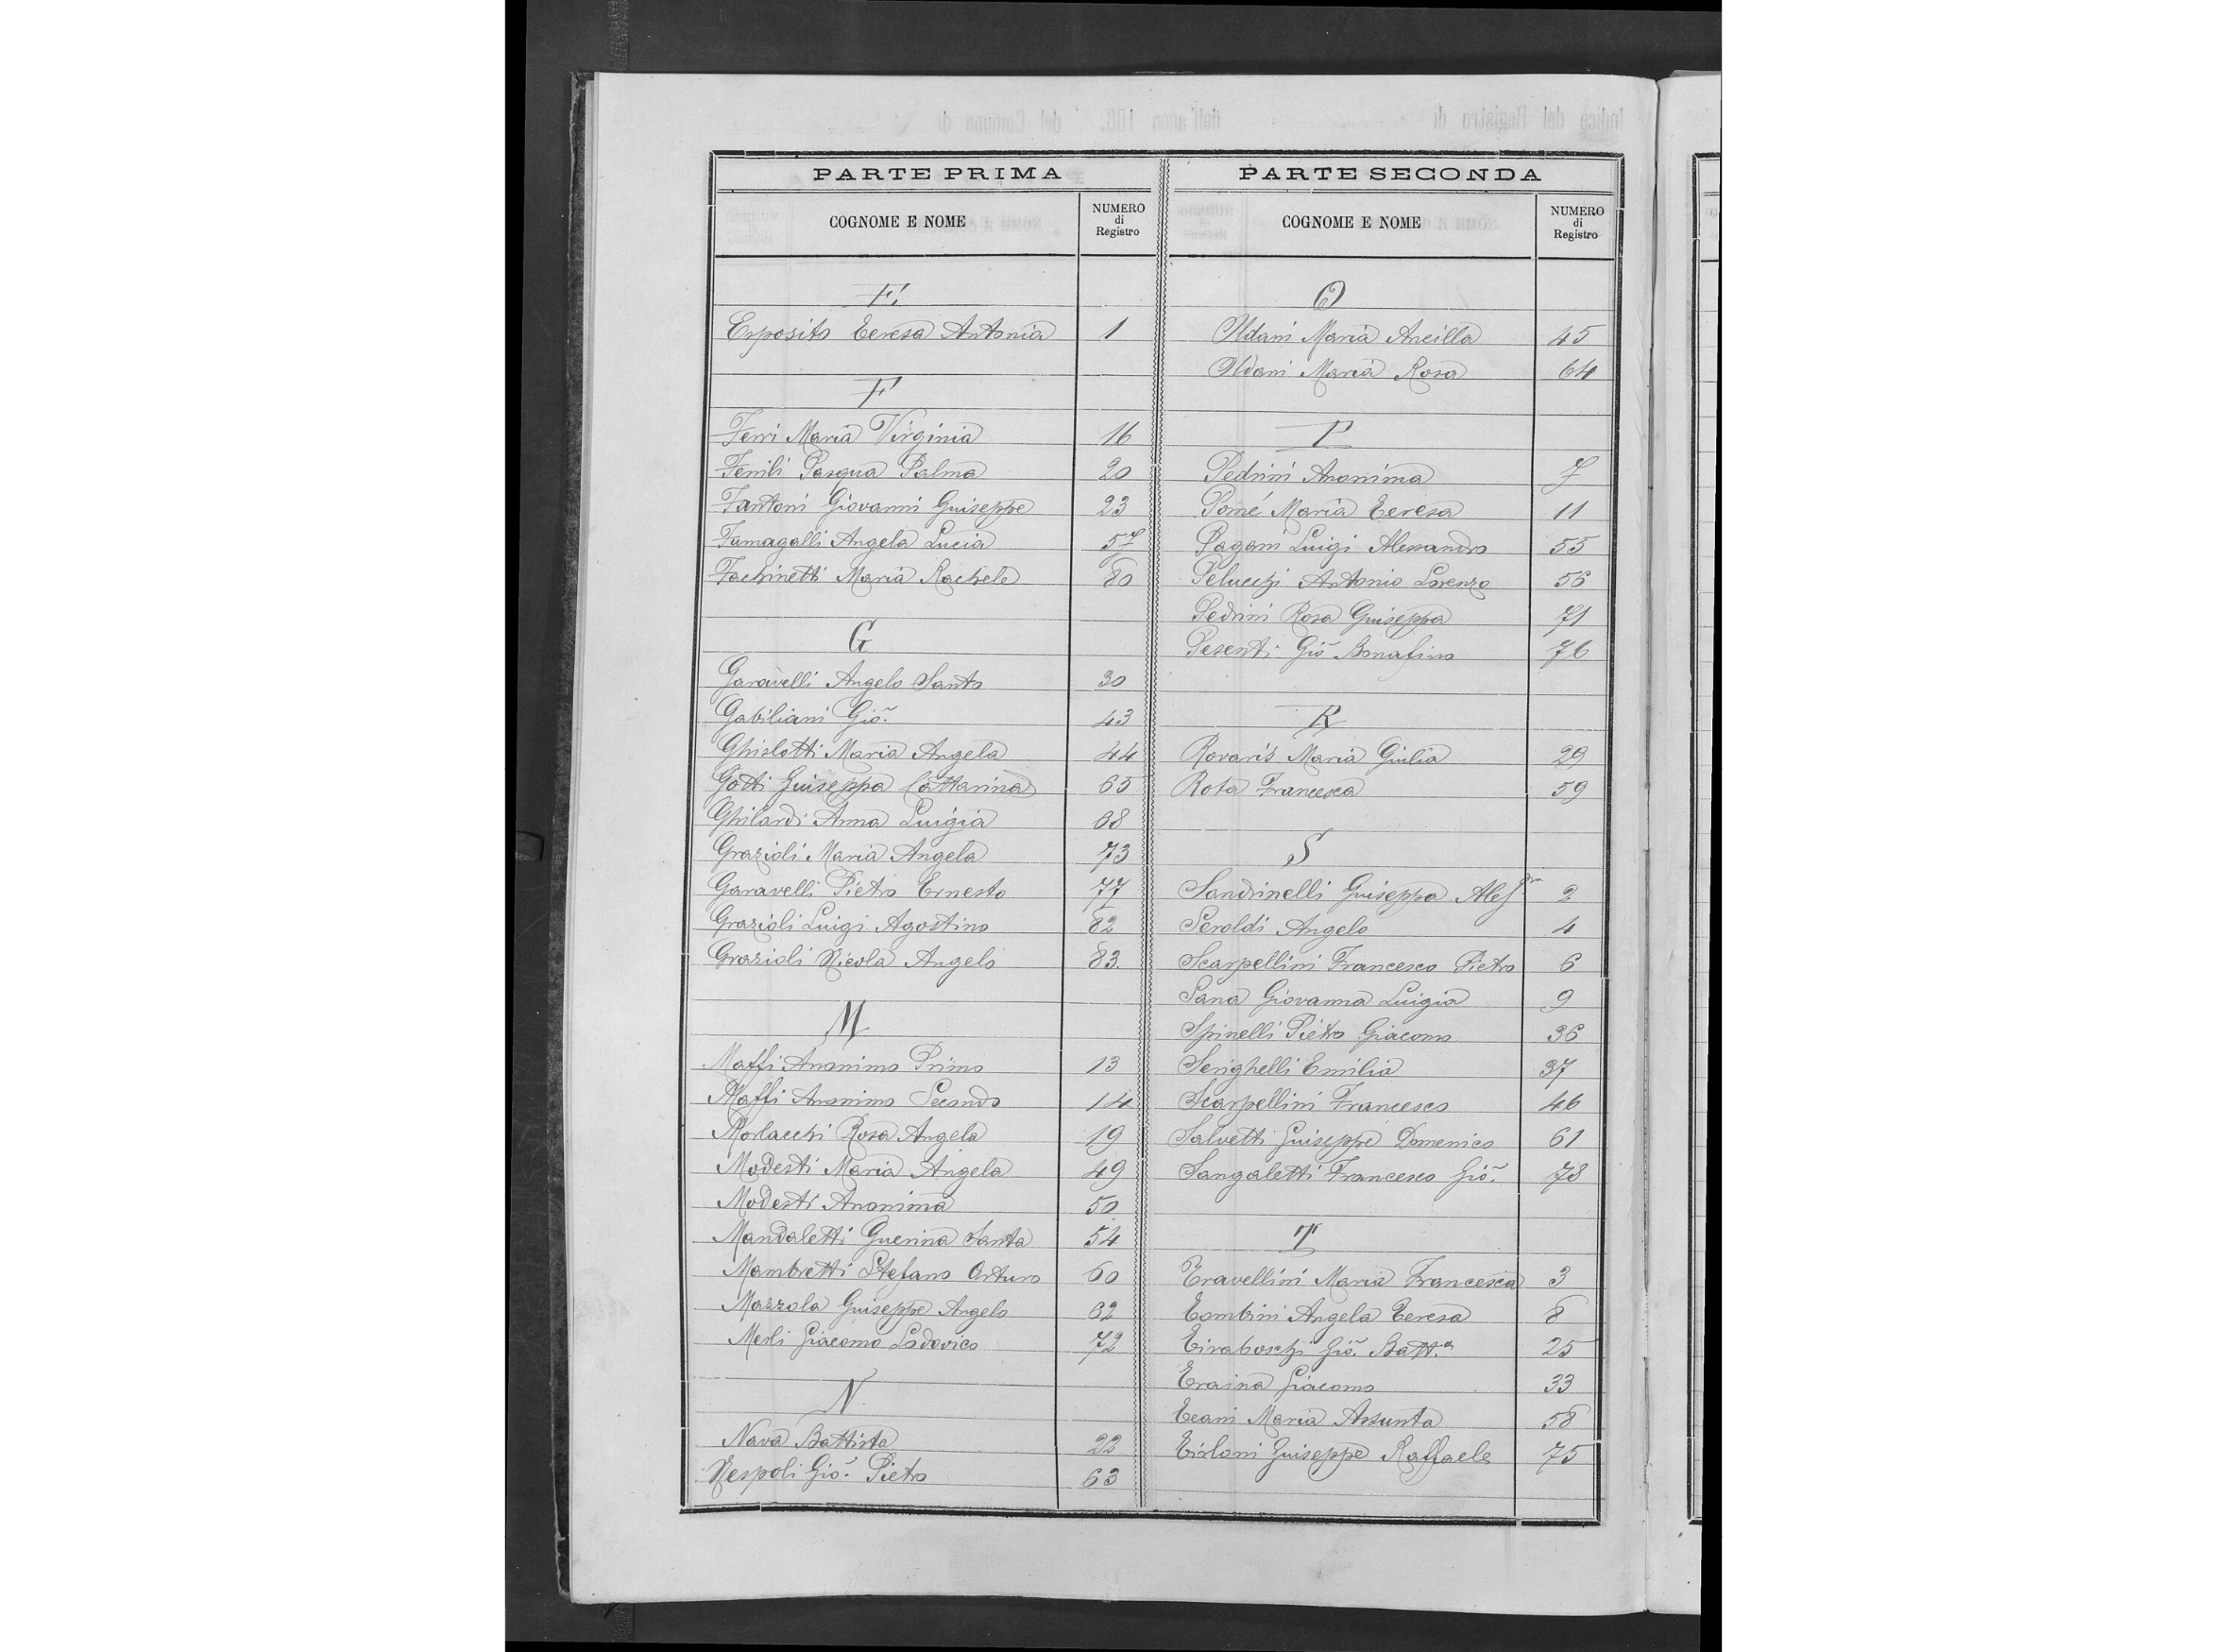 PARTE PRIMA
COGNOME E NOME
NUMERO
di
Registro
E
Esposito Teresa Antonia 1
F
Ferri Maria Virginia 16
Fenili Pasqua Palma 20
Fantoni Giovanni Guiseppe 23
Fumagalli Angela Lucia 57
Fachinetti Maria Rachele 80
G
Garavelli Angelo Santo 30
Gabiliani Gio. 43
Ghislotti Maria Angela 44
Gotti Guiseppa Cattarina 65
Ghilardi Anna Luigia 68
Grazioli Maria Angela 73
Garavelli Pietro Ernesto 77
Grazioli Luigi Agostino 82
Grazioli Nicola Angelo 83.
M
Maffi Anonimo Primo 13
Maffi Anonimo Secondo 14
Morlacchi Rosa Angela 19
Modesti Maria Angela 49
Modesti Anonima 50
Mandaletti Guerina Santa 54
Mambretti Stefano Arturo 60
Mazzola Guiseppe Angelo 62
Merli Giacomo Lodovico 72
N.
Nava Battista 22
Nespoli Gio. Pietro 63
PARTE SECONDA
COGNOME E NOME
NUMERO
di
Registro
O
Oldani Maria Ancilla 45
Oldani Maria Rosa 64
P
Pedrini Anonima 7
Pomé Maria Teresa 11
Pagani Luigi Alessandro 55
Pelucchi Antonio Lorenzo 56
Pedrini Rosa Guiseppa 71
Pesenti Gio Bonafino 76
R
Rovaris Maria Giulia 29
Rota Francesca 59
S
Sandrinelli Guiseppa 2
Seroldi Angelo 4
Scarpellini Francesco Pietro 6
Sana Giovanna Luigia 9
Spinelli Pietro Giacomo 36
Serighelli Emilia 37
Scarpellini Francesco 46
Salvetti Guiseppe Domenico 61
Sangaletti Francesco Gio. 78
T
Travellini Maria Francesca 3
Tombini Angela Teresa 8
Tiraboschi Gio. Batt.a 25
Traina Giacomo 33
Teani Maria Assunta 58
Tirloni Guiseppe Raffaele 75